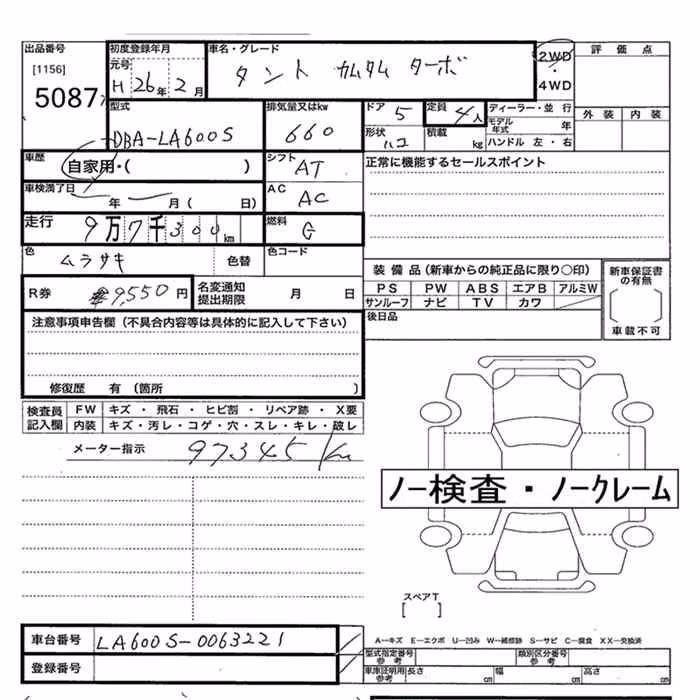 出品番号
[1156]
5087
初度登録年月
元号
H 26年 2月
車名・グレード
タント カスタム ターボ
2WD
・
4WD
評価点
外装 内装
型式
DBA-LA600S
排気量又はkw
660
ドア 5
定員 4人
形状 ハコ
積載 kg
ディーラー・並行
モデル年式 年
ハンドル 左・右
車歴
自家用・( )
シフト AT
正常に機能するセールスポイント
車検満了日
年 月 ( 日)
AC AC
走行
9万7千300km
燃料 G
色
ムラサキ
色替
色コード
R券 ¥9,550円
名変通知
提出期限
月 日
装備品(新車からの純正品に限り○印)
PS PW ABS エアB アルミW
サンルーフ ナビ TV カワ
新車保証書
の有無
車載不可
後日品
注意事項申告欄(不具合内容等は具体的に記入して下さい)
修復歴 有(箇所 )
検査員
記入欄
FW キズ ・ 飛石 ・ ヒビ割 ・ リペア跡 ・ X要
内装 キズ・汚レ・コゲ・穴・スレ・キレ・破レ
メーター指示 97345Km
ノー検査・ノークレーム
スペアT
[ ]
A―キズ E―エクボ U―凹み W―補修跡 S―サビ C―腐食 XX―交換済
車台番号 LA600S-0063221
登録番号
型式指定番号
参考
類別区分番号
参考
車庫証明用
参考
長さ cm
幅 cm
高さ cm